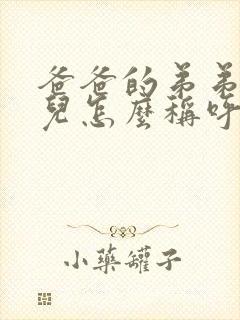 爸爸的弟弟
兒怎麼稱呼
小藥罐子